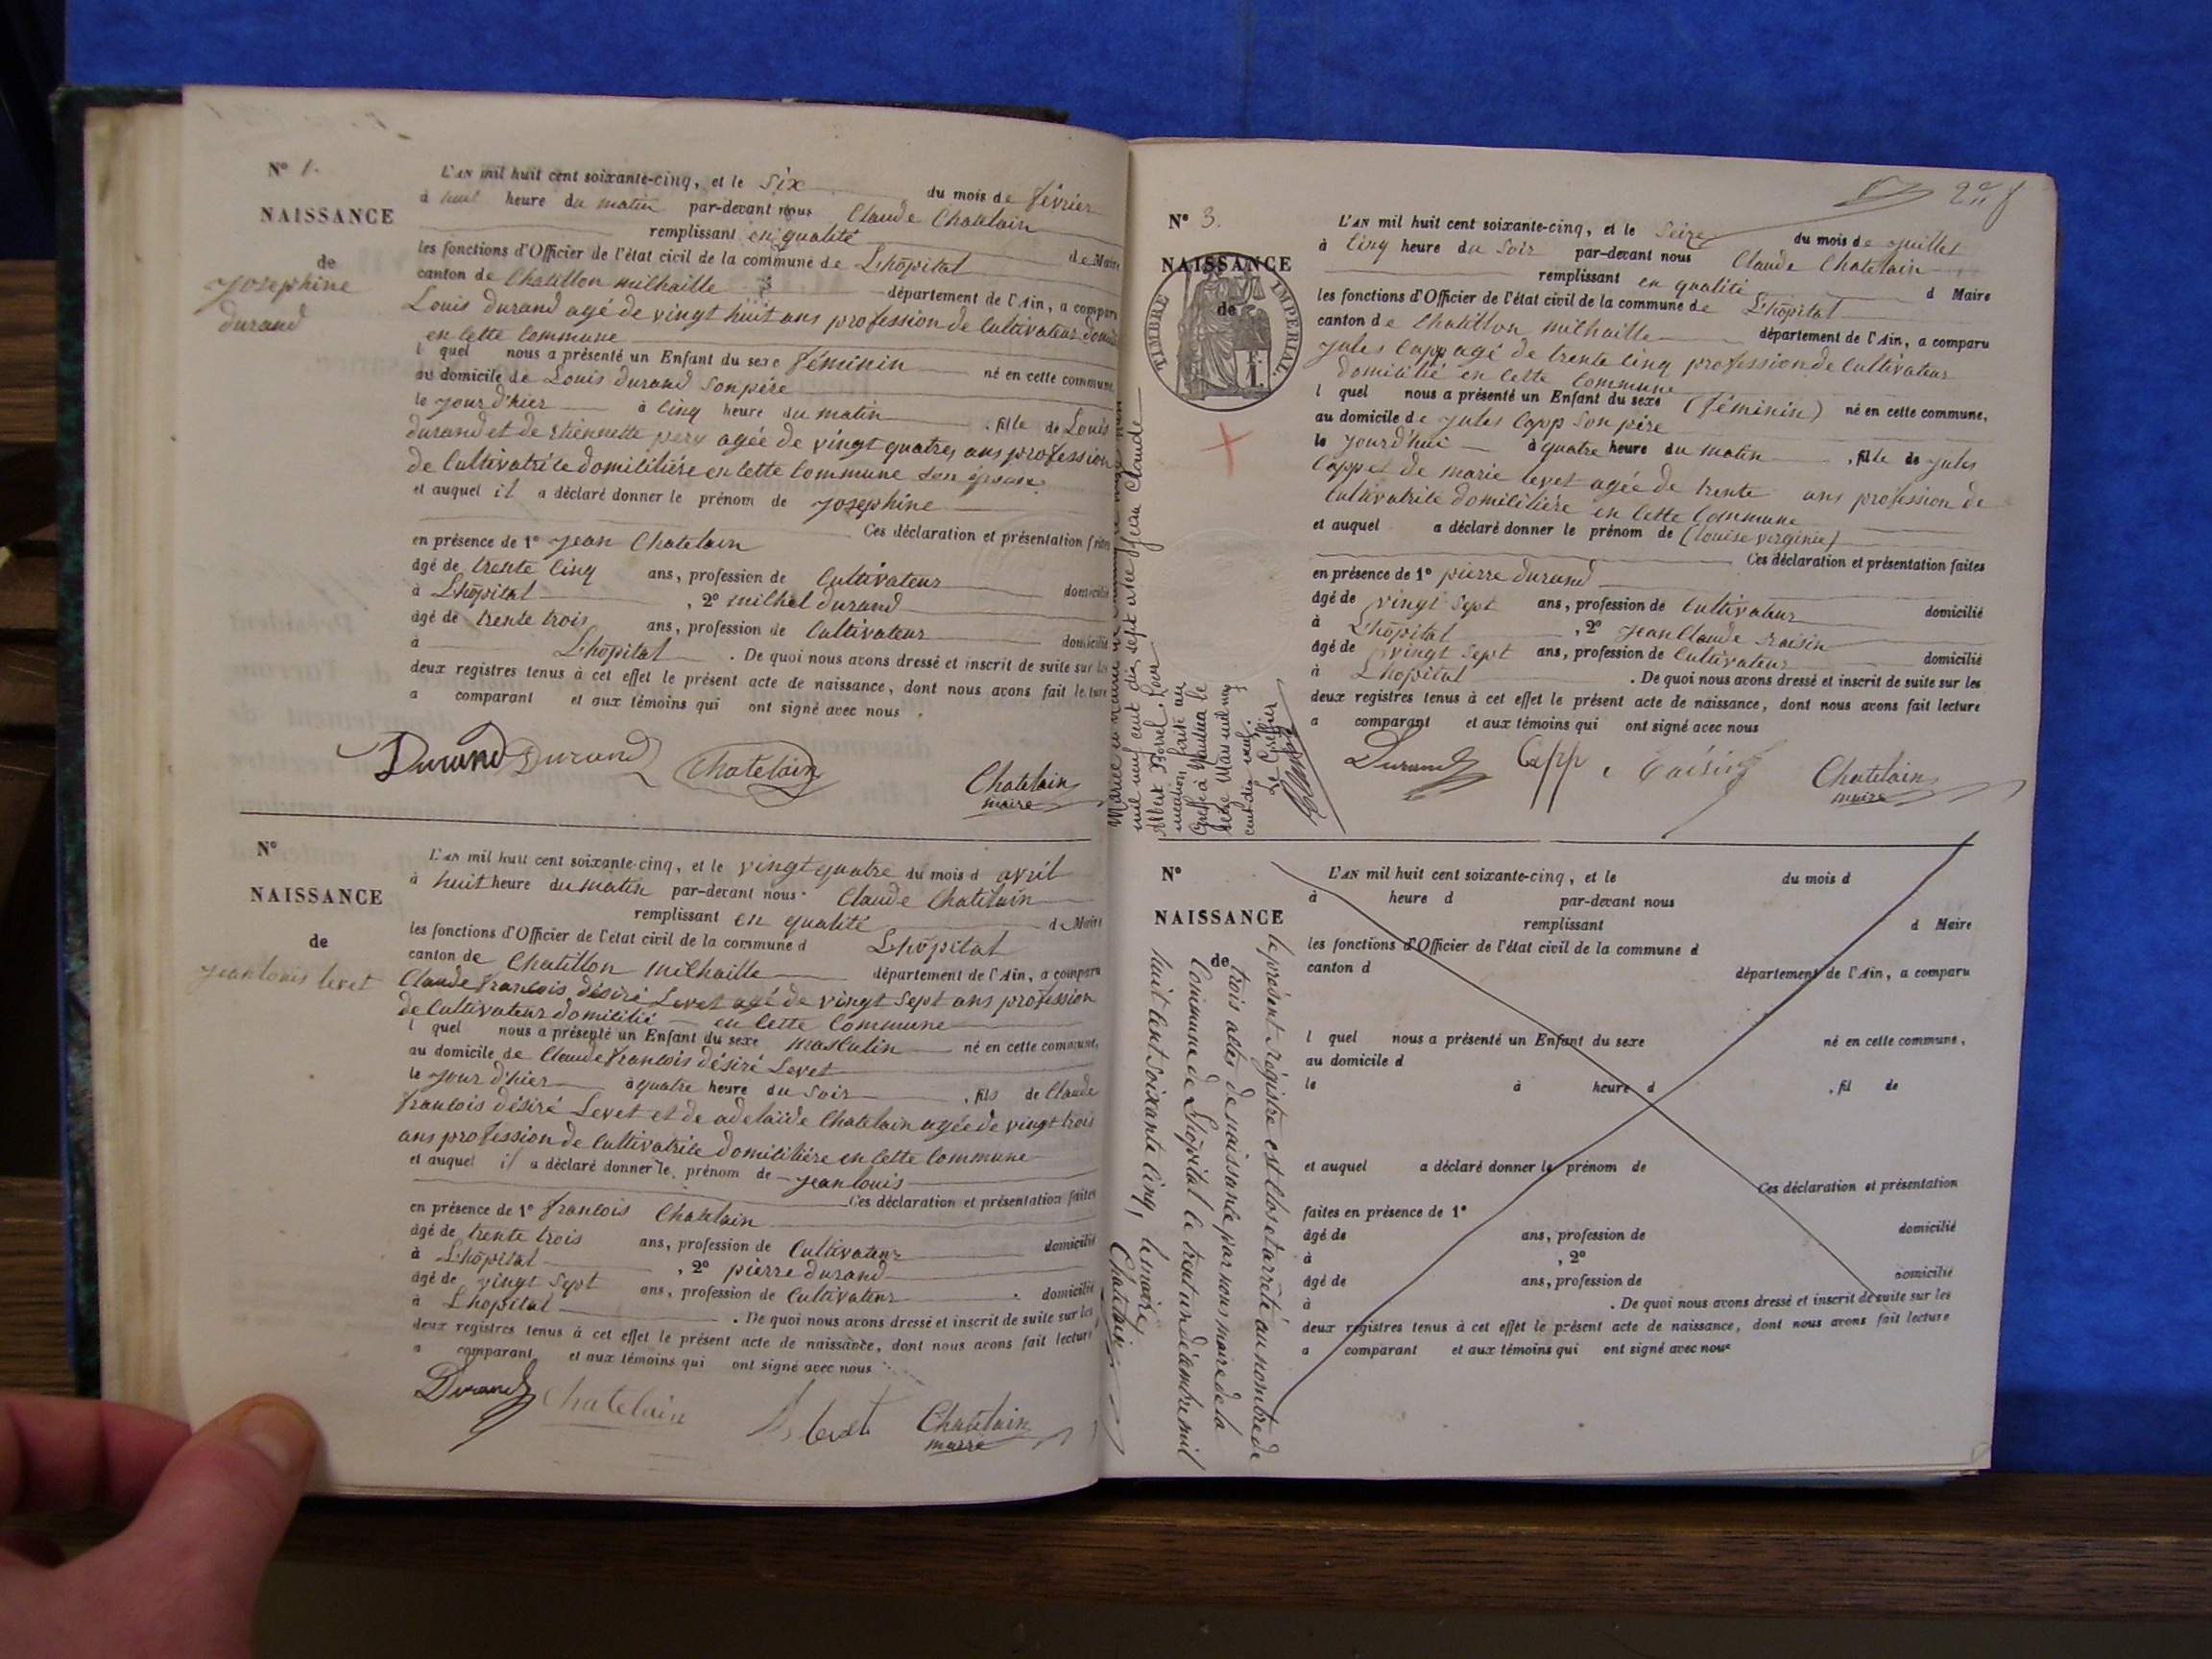 N° 1.
NAISSANCE
de
Josephine
durand
L'AN mil huit cent soixante-cinq, et le six du mois de février
à huit heure du matin par-devant nous Claude Chatelain
remplissant en qualité de Maire
les fonctions d'Officier de l'état civil de la commune de Lhôpital
canton de Chatillon milhaille département de l'Ain, a comparu
Louis durand agé de vingt huit ans profession de Cultivateur domicilié
en cette Commune
l quel nous a présenté un Enfant du sexe féminin né en cette commune,
au domicile de Louis durand son père
le jour d'hier à cinq heure du matin , fille de Louis
durand et de Etiennette pery agée de vingt quatres ans profession
de Cultivatrice domicilière en cette Commune son épouse
et auquel il a déclaré donner le prénom de josephine
Ces déclaration et présentation faites
en présence de 1° jean Chatelain
âgé de trente cinq ans, profession de Cultivateur domicilié
à Lhôpital , 2° milhel durand
âgé de trente trois ans, profession de Cultivateur domicilié
à Lhôpital . De quoi nous avons dressé et inscrit de suite sur les
deux registres tenus à cet effet le présent acte de naissance, dont nous avons fait lecture
a comparant et aux témoins qui ont signé avec nous .
Durand Durand Chatelain Chatelain
maire
N°
NAISSANCE
de
jean louis levet
L'AN mil huit cent soixante-cinq, et le vingt quatre du mois d avril
à huit heure du matin par-devant nous Claude Chatelain
remplissant en qualité de Maire
les fonctions d'Officier de l'état civil de la commune d Lhôpital
canton de Chatillon milhaille département de l'Ain, a comparu
Claude françois désiré Levet agé de vingt sept ans profession
de Cultivateur domicilié en cette Commune
l quel nous a présenté un Enfant du sexe masculin né en cette commune,
au domicile de Claude françois désiré Levet
le jour d'hier à quatre heure du soir , fils de Claude
françois désiré Levet et de adelaïde Chatelain agée de vingt trois
ans profession de Cultivatrice domicilière en cette Commune
et auquel il a déclaré donner le prénom de jean louis
Ces déclaration et présentation faites
en présence de 1° françois Chatelain
âgé de trente trois ans, profession de Cultivateur domicilié
à Lhôpital , 2° pierre durand
âgé de vingt sept ans, profession de Cultivateur domicilié
à Lhopital . De quoi nous avons dressé et inscrit de suite sur les
deux registres tenus à cet effet le présent acte de naissance, dont nous avons fait lecture
a comparant et aux témoins qui ont signé avec nous
Durand Chatelain Levet Chatelain
maire
N° 3.
NAISSANCE
de
TIMBRE IMPERIAL
mil neuf cent dix sept avec Jean Claude
Albert Borrel, pour
mention faite au
Greffe à Nantua le
seize Mars mil neuf
cent dix neuf.
Le Greffier
L'AN mil huit cent soixante-cinq, et le seize du mois de juillet
à cinq heure du soir par-devant nous Claude Chatelain
remplissant en qualité d Maire
les fonctions d'Officier de l'état civil de la commune de Lhôpital
canton de Chatillon milhaille département de l'Ain, a comparu
jules Capp agé de trente cinq profession de Cultivateur
domicilié en cette Commune
l quel nous a présenté un Enfant du sexe (féminin) né en cette commune,
au domicile de jules Capp son père
le jourd'hui à quatre heure du matin , fille de jules
Capp et de marie levet agée de trente ans profession de
Cultivatrice domicilière en cette Commune
et auquel a déclaré donner le prénom de (louise virginie)
Ces déclaration et présentation faites
en présence de 1° pierre durand
âgé de vingt sept ans, profession de Cultivateur domicilié
à Lhôpital , 2° jean Claude raisin
âgé de vingt sept ans, profession de Cultivateur domicilié
à Lhopital . De quoi nous avons dressé et inscrit de suite sur les
deux registres tenus à cet effet le présent acte de naissance, dont nous avons fait lecture
a comparant et aux témoins qui ont signé avec nous
Durand Capp raisin Chatelain
maire
N°
NAISSANCE
de
le présent régistre est clos et arrêté au nombre de
trois actes de naissance par nous maire de la
Commune de Lhôpital le trente un décembre mil
huit cent soixante cinq, le maire,
Chatelain
L'AN mil huit cent soixante-cinq, et le du mois d
à heure d par-devant nous
remplissant d Maire
les fonctions d'Officier de l'état civil de la commune d
canton d département de l'Ain, a comparu
l quel nous a présenté un Enfant du sexe né en cette commune,
au domicile d
le à heure d , fil de
et auquel a déclaré donner le prénom de
Ces déclaration et présentation
faites en présence de 1°
âgé de ans, profession de domicilié
à , 2°
âgé de ans, profession de domicilié
à . De quoi nous avons dressé et inscrit de suite sur les
deux registres tenus à cet effet le présent acte de naissance, dont nous avons fait lecture
a comparant et aux témoins qui ont signé avec nous